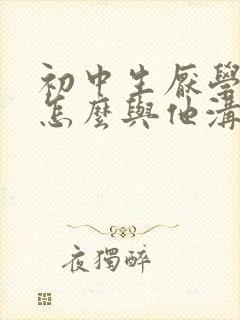 初中生厭學
怎麼與他溝
夜獨醉